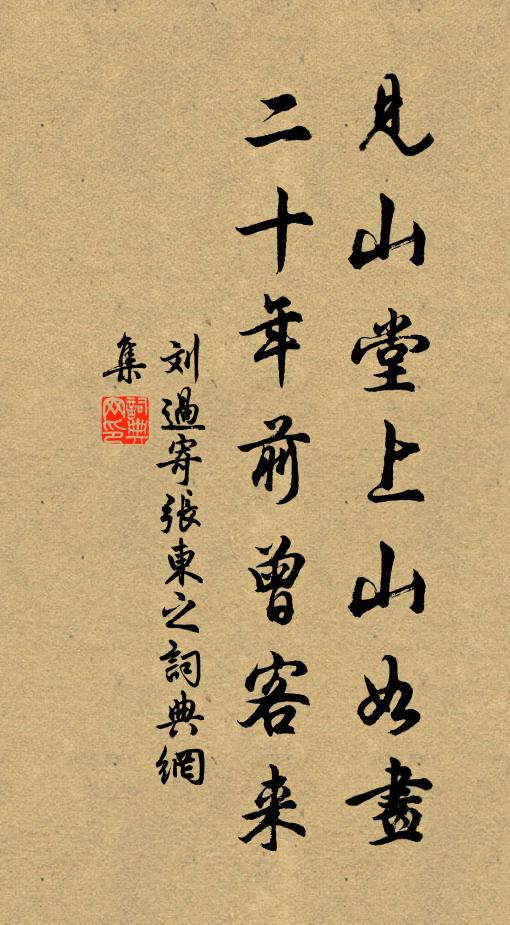 見山堂上山如畫
二十年前曾客来
刘過寄張東之詞典網
集
詞典
网印